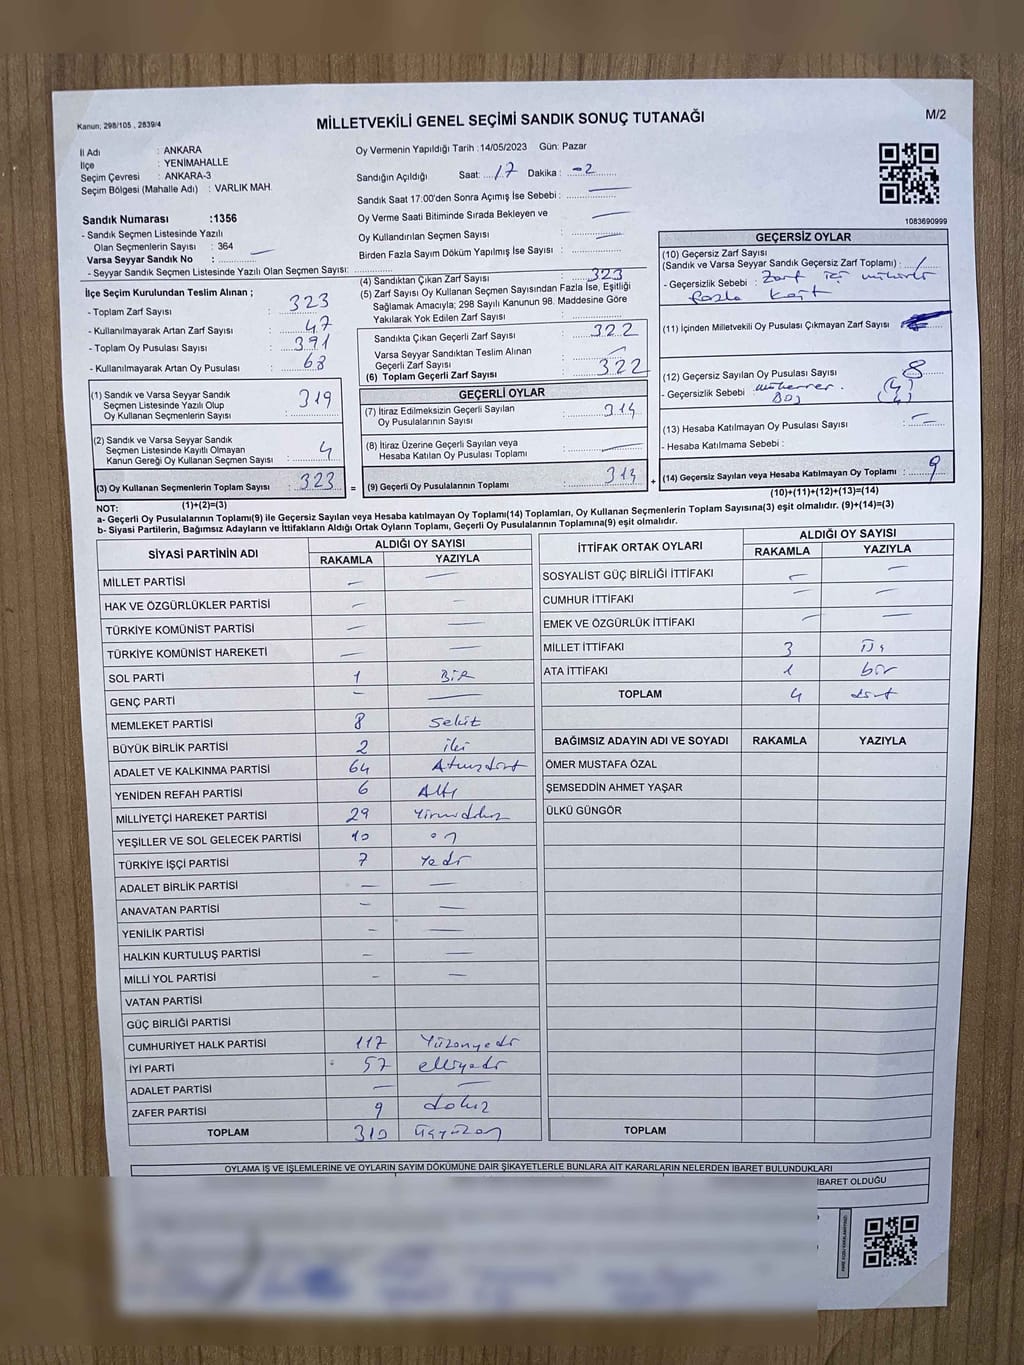 Kanun; 298/105 , 2839/4
MİLLETVEKİLİ GENEL SEÇİMİ SANDIK SONUÇ TUTANAĞI
M/2
İl Adı : ANKARA
İlçe : YENİMAHALLE
Seçim Çevresi : ANKARA-3
Seçim Bölgesi (Mahalle Adı) : VARLIK MAH.
Sandık Numarası :1356
- Sandık Seçmen Listesinde Yazılı
Olan Seçmenlerin Sayısı : 364
Varsa Seyyar Sandık No :
- Seyyar Sandık Seçmen Listesinde Yazılı Olan Seçmen Sayısı:
Oy Vermenin Yapıldığı Tarih :14/05/2023 Gün: Pazar
Sandığın Açıldığı Saat: 17 Dakika : -2
Sandık Saat 17:00'den Sonra Açımış İse Sebebi : —
Oy Verme Saati Bitiminde Sırada Bekleyen ve
Oy Kullandırılan Seçmen Sayısı : —
Birden Fazla Sayım Döküm Yapılmış İse Sayısı : —
1083690999
İlçe Seçim Kurulundan Teslim Alınan ;
- Toplam Zarf Sayısı : 323
- Kullanılmayarak Artan Zarf Sayısı : 47
- Toplam Oy Pusulası Sayısı : 391
- Kullanılmayarak Artan Oy Pusulası : 68
(1) Sandık ve Varsa Seyyar Sandık
Seçmen Listesinde Yazılı Olup
Oy Kullanan Seçmenlerin Sayısı : 319
(2) Sandık ve Varsa Seyyar Sandık
Seçmen Listesinde Kayıtlı Olmayan
Kanun Gereği Oy Kullanan Seçmen Sayısı : 4
(3) Oy Kullanan Seçmenlerin Toplam Sayısı : 323
(1)+(2)=(3)
(4) Sandıktan Çıkan Zarf Sayısı : 323
(5) Zarf Sayısı Oy Kullanan Seçmen Sayısından Fazla İse, Eşitliği
Sağlamak Amacıyla; 298 Sayılı Kanunun 98. Maddesine Göre
Yakılarak Yok Edilen Zarf Sayısı :
Sandıkta Çıkan Geçerli Zarf Sayısı : 322
Varsa Seyyar Sandıktan Teslim Alınan
Geçerli Zarf Sayısı : —
(6) Toplam Geçerli Zarf Sayısı : 322
GEÇERLİ OYLAR
(7) İtiraz Edilmeksizin Geçerli Sayılan
Oy Pusulalarının Sayısı : 314
(8) İtiraz Üzerine Geçerli Sayılan veya
Hesaba Katılan Oy Pusulası Toplamı : —
= (9) Geçerli Oy Pusulalarının Toplamı : 314 +
GEÇERSİZ OYLAR
(10) Geçersiz Zarf Sayısı
(Sandık ve Varsa Seyyar Sandık Geçersiz Zarf Toplamı) : 1
- Geçersizlik Sebebi : Zarf içi mühürlü
fazla kağıt
(11) İçinden Milletvekili Oy Pusulası Çıkmayan Zarf Sayısı
(12) Geçersiz Sayılan Oy Pusulası Sayısı : 8
- Geçersizlik Sebebi : mükerrer. (4)
Boş (4)
(13) Hesaba Katılmayan Oy Pusulası Sayısı : —
- Hesaba Katılmama Sebebi :
(14) Geçersiz Sayılan veya Hesaba Katılmayan Oy Toplamı : 9
(10)+(11)+(12)+(13)=(14)
NOT:
a- Geçerli Oy Pusulalarının Toplamı(9) ile Geçersiz Sayılan veya Hesaba Katılmayan Oy Toplamı(14) Toplamları, Oy Kullanan Seçmenlerin Toplam Sayısına(3) eşit olmalıdır. (9)+(14)=(3)
b- Siyasi Partilerin, Bağımsız Adayların ve İttifakların Aldığı Ortak Oyların Toplamı, Geçerli Oy Pusulalarının Toplamına(9) eşit olmalıdır.
SİYASİ PARTİNİN ADI ALDIĞI OY SAYISI
RAKAMLA YAZIYLA
MİLLET PARTİSİ — —
HAK VE ÖZGÜRLÜKLER PARTİSİ — —
TÜRKİYE KOMÜNİST PARTİSİ — —
TÜRKİYE KOMÜNİST HAREKETİ — —
SOL PARTİ 1 BİR
GENÇ PARTİ — —
MEMLEKET PARTİSİ 8 Sekiz
BÜYÜK BİRLİK PARTİSİ 2 iki
ADALET VE KALKINMA PARTİSİ 64 Atmışdört
YENİDEN REFAH PARTİSİ 6 Altı
MİLLİYETÇİ HAREKET PARTİSİ 29 Yirmidokuz
YEŞİLLER VE SOL GELECEK PARTİSİ 10 on
TÜRKİYE İŞÇİ PARTİSİ 7 Yedi
ADALET BİRLİK PARTİSİ — —
ANAVATAN PARTİSİ — —
YENİLİK PARTİSİ — —
HALKIN KURTULUŞ PARTİSİ — —
MİLLİ YOL PARTİSİ — —
VATAN PARTİSİ
GÜÇ BİRLİĞİ PARTİSİ
CUMHURİYET HALK PARTİSİ 117 Yüzonyedi
İYİ PARTİ 57 elliyedi
ADALET PARTİSİ — —
ZAFER PARTİSİ 9 dokuz
TOPLAM 310 Üçyüzon
İTTİFAK ORTAK OYLARI ALDIĞI OY SAYISI
RAKAMLA YAZIYLA
SOSYALİST GÜÇ BİRLİĞİ İTTİFAKI — —
CUMHUR İTTİFAKI — —
EMEK VE ÖZGÜRLÜK İTTİFAKI — —
MİLLET İTTİFAKI 3 Üç
ATA İTTİFAKI 1 bir
TOPLAM 4 dört
BAĞIMSIZ ADAYIN ADI VE SOYADI RAKAMLA YAZIYLA
ÖMER MUSTAFA ÖZAL
ŞEMSEDDİN AHMET YAŞAR
ÜLKÜ GÜNGÖR
TOPLAM
OYLAMA İŞ VE İŞLEMLERİNE VE OYLARIN SAYIM DÖKÜMÜNE DAİR ŞİKAYETLERLE BUNLARA AİT KARARLARIN NELERDEN İBARET BULUNDUKLARI
İBARET OLDUĞU